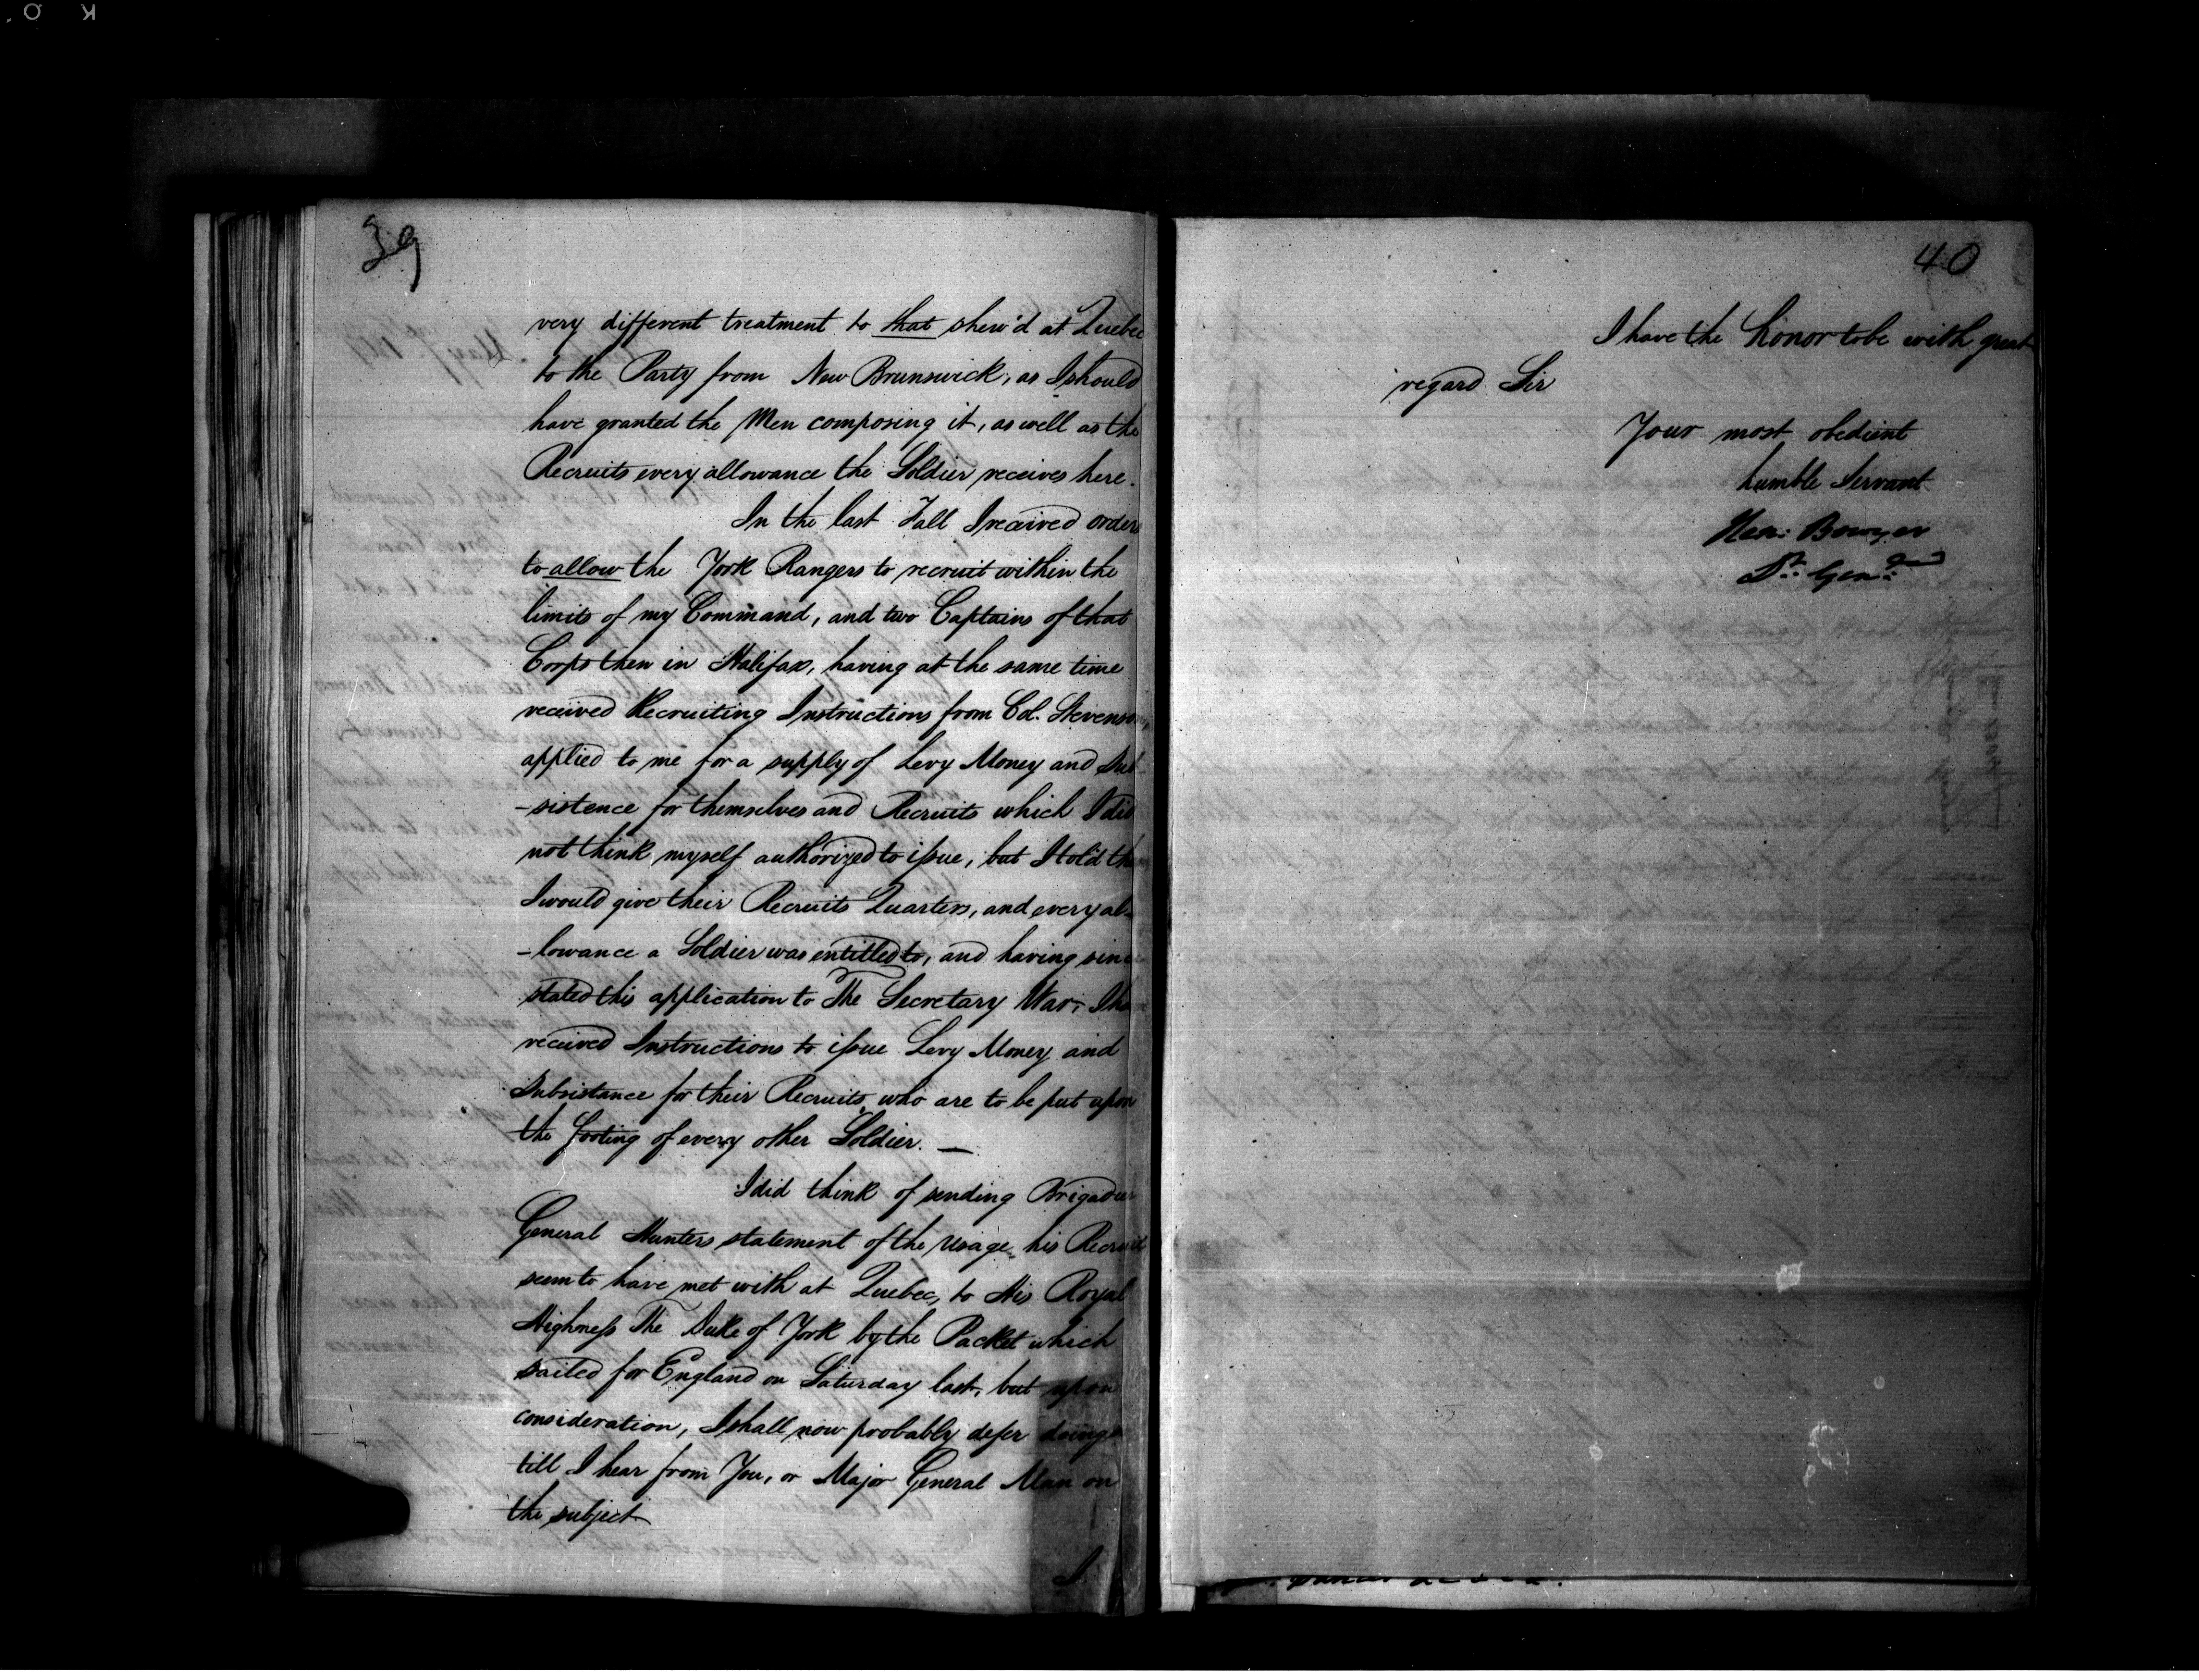 39
very different treatment to that shew'd at Quebec
to the Party from New Brunswick, as I should
have granted the Men composing it, as well as the
Recruits every allowance the Soldier receives here.
In the last Fall I received orders
to allow the York Rangers to recruit within the
limits of my Command, and two Captains of that
Corps then in Halifax, having at the same time
received Recruiting Instructions from Col. Stevenson,
applied to me for a supply of Levy Money and Sub-
-sistence for themselves and Recruits which I did
not think myself authorized to issue, but I told them
I would give their Recruits Quarters, and every al-
-lowance a Soldier was entitled to, and having since
stated this application to The Secretary War, I have
received Instructions to issue Levy Money and
Subsistance for their Recruits who are to be put upon
the footing of every other Soldier. —
I did think of sending Brigadier
General Hunters statement of the usage his Recruits
seem to have met with at Quebec, to His Royal
Highness The Duke of York by the Packet which
sailed for England on Saturday last, but upon
consideration, I shall now probably defer doing
till I hear from You, or Major General Alan on
the subject
I
40
I have the honor to be with great
regard Sir
Your most obedient
humble Servant
Hen: Bowyer
Lt: Genl: